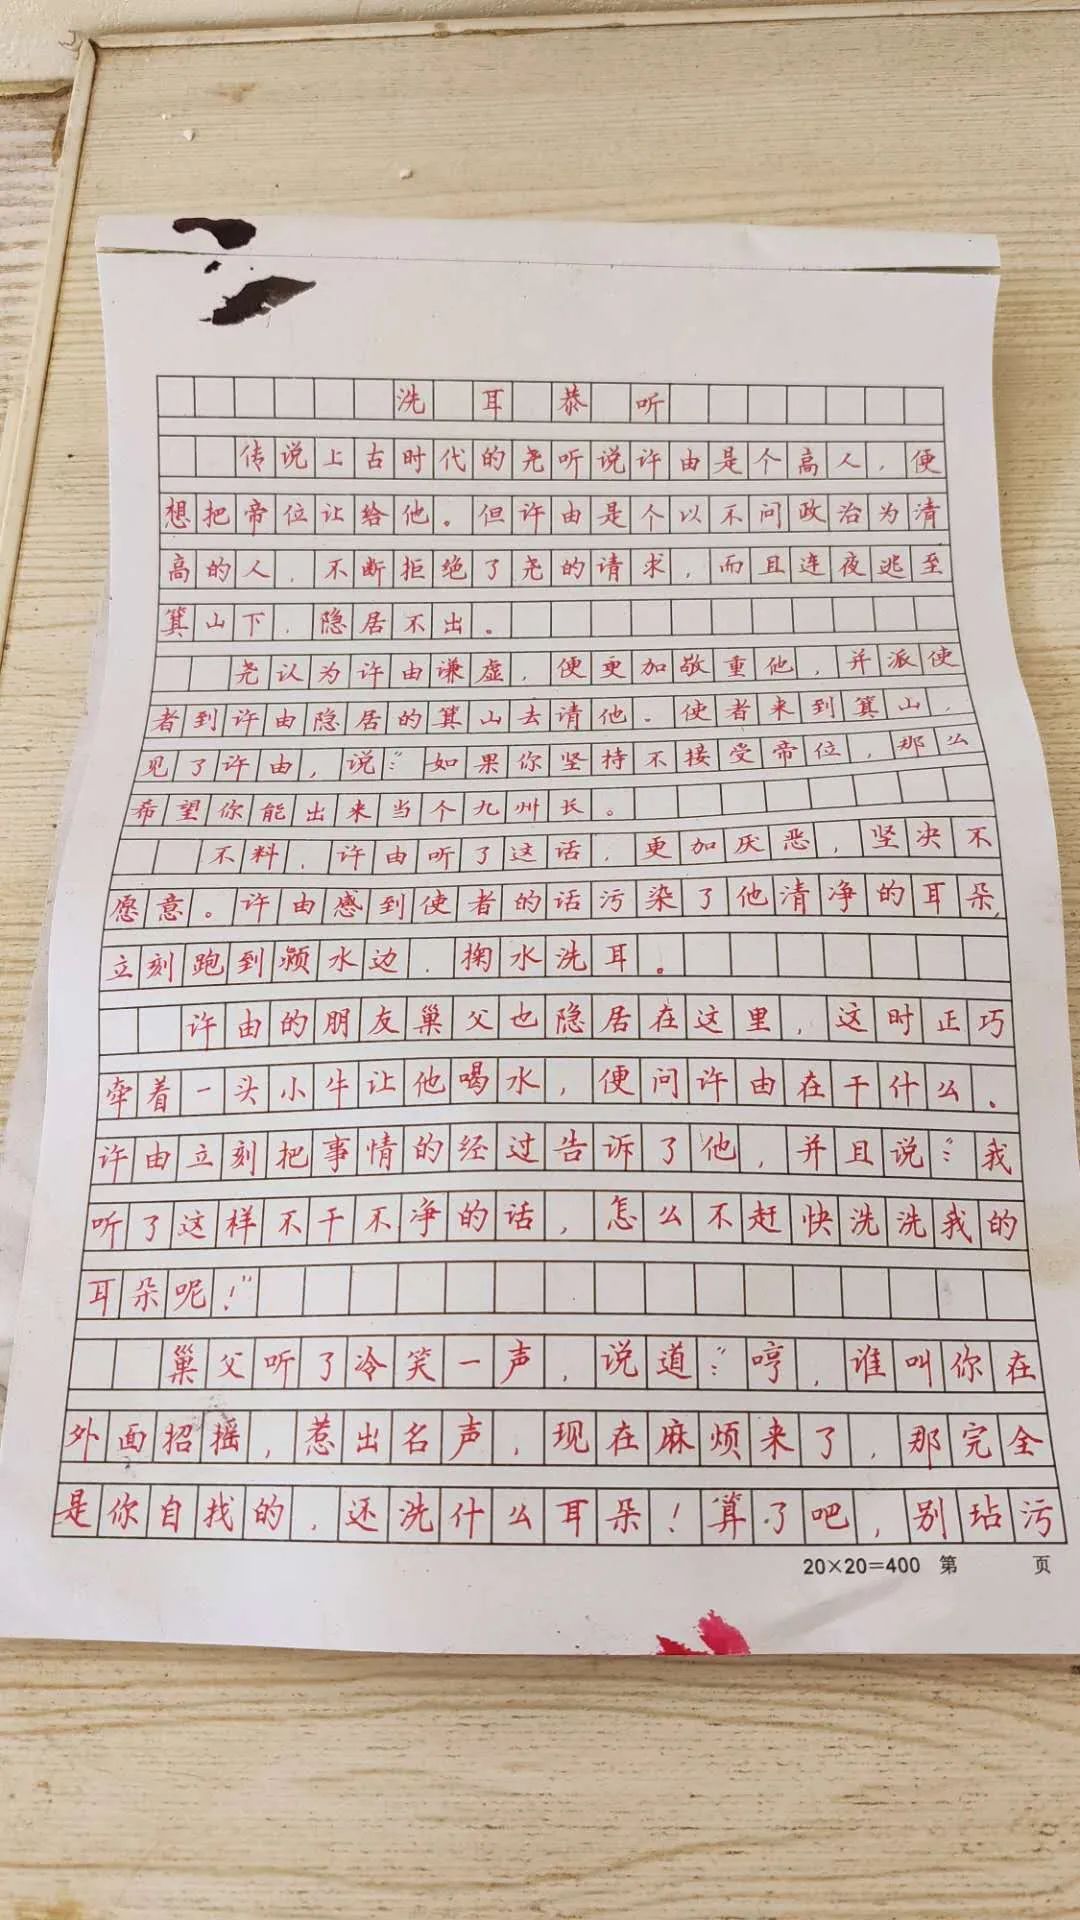 洗耳恭听
传说上古时代的尧听说许由是个高人，便
想把帝位让给他。但许由是个以不问政治为清
高的人，不断拒绝了尧的请求，而且连夜逃至
箕山下，隐居不出。
尧认为许由谦虚，便更加敬重他，并派使
者到许由隐居的箕山去请他。使者来到箕山，
见了许由，说：“如果你坚持不接受帝位，那么
希望你能出来当个九州长。
不料，许由听了这话，更加厌恶，坚决不
愿意。许由感到使者的话污染了他清净的耳朵，
立刻跑到颍水边，掬水洗耳。
许由的朋友巢父也隐居在这里，这时正巧
牵着一头小牛让他喝水，便问许由在干什么。
许由立刻把事情的经过告诉了他，并且说：“我
听了这样不干不净的话，怎么不赶快洗洗我的
耳朵呢！”
巢父听了冷笑一声，说道：“哼，谁叫你在
外面招摇，惹出名声，现在麻烦来了，那完全
是你自找的，还洗什么耳朵！算了吧，别玷污
20×20=400 第 页